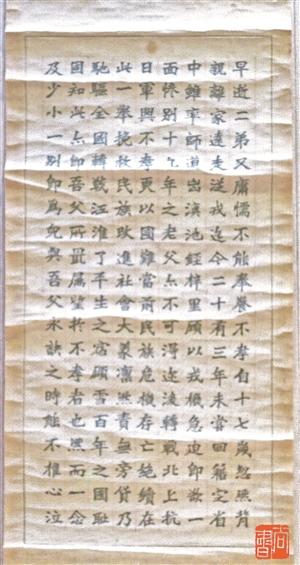 早逝二弟又庸懦不能奉養不孝自十七歲忽然背
親離家遠走從戎迄今二十有三年未嘗回籍定省
中雖率師道出滇池經梓里顧以戎機急迫即欲一
面悵別十七年之老父亦不可得迨淩轉戰北上抗
日軍興不孝更以國難當前民族危機存亡絕續在
此一舉挽救民族改進社會大義凜然責無旁貸乃
馳驅全國轉戰江淮了平生之宿願雪百年之國恥
固知此亦即吾父所屬望於不孝者也然而一念
及少小一別即為兒與吾父永訣之時能不椎心泣